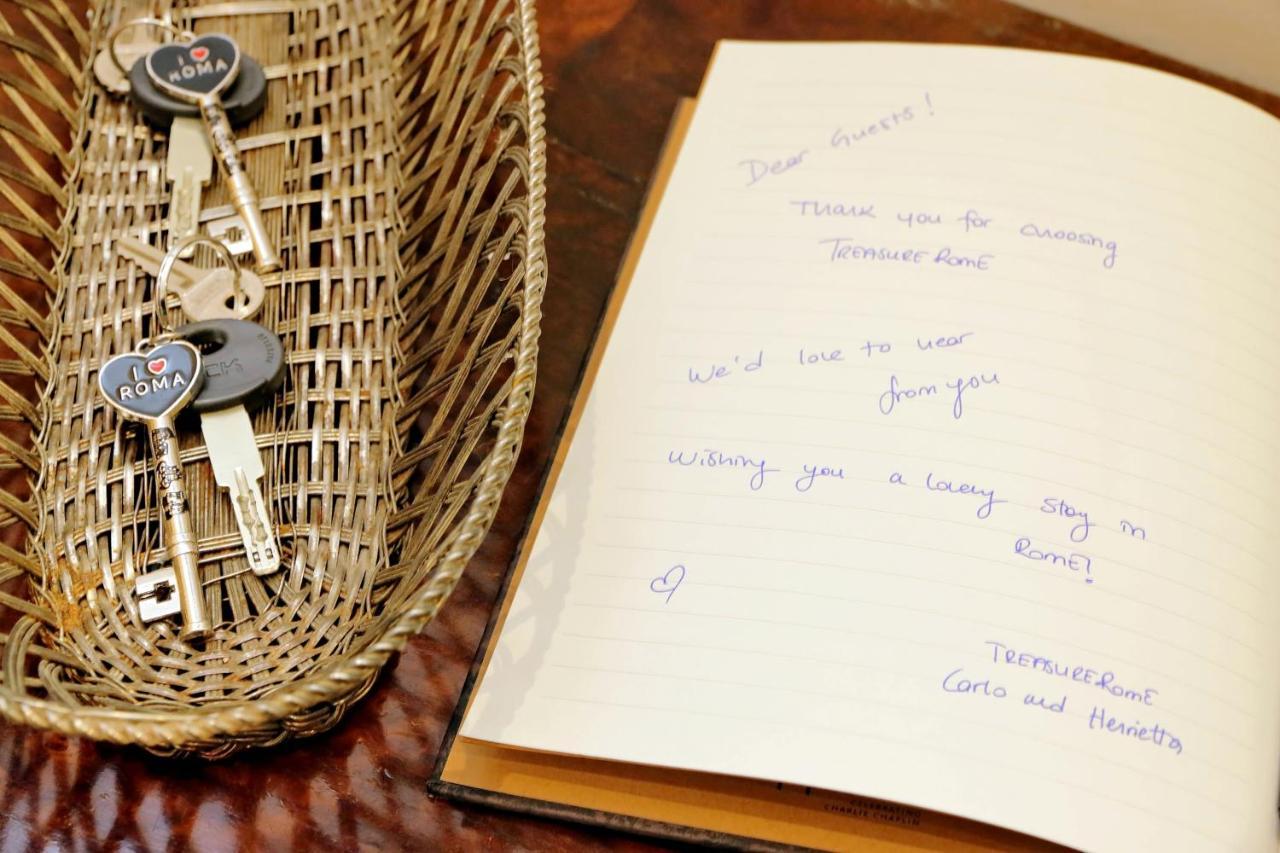 I ROMA
I
ROMA
CK
Dear Guests!
Thank you for choosing
TREASURE ROME
We'd love to hear
from you
Wishing you a lovely stay in
ROME!
TREASURE ROME
Carlo and Henrietta
CELEBRATING
CHARLIE CHAPLIN